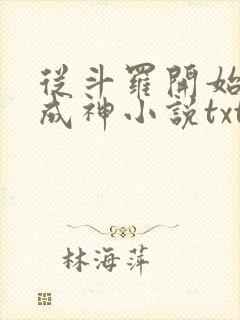 從斗羅開始
成神小說txt
林海萍